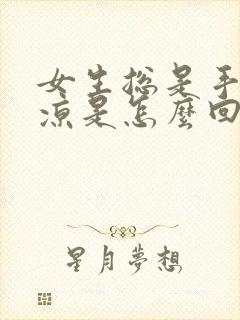 女生总是手
凉是怎麼回
星月夢想